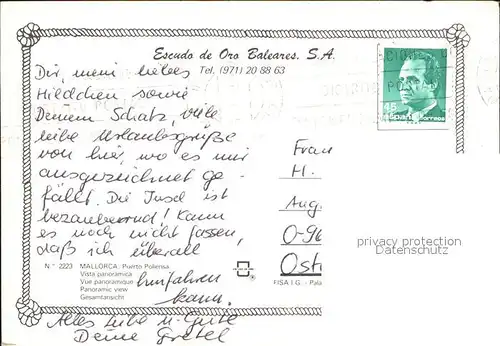 Escudo de Oro Baleares. S.A.
Tel. (971) 20 88 63
Dir, mein liebes
Hildchen sowie
Deinem Schatz, viele
liebe Urlaubsgrüße
von hier, wo es mir
ausgezeichnet ge-
fällt. Die Insel ist
bezaubernd! Kann
es noch nicht fassen,
daß ich überall
hinfahren
kann.
Alles Liebe u. Gute
Deine Gretel
45
España Correos
Frau
H.
Aug
O-90
Ost
privacy protection
Datenschutz
N.º 2223 MALLORCA: Puerto Pollensa
Vista panorámica
Vue panoramique
Panoramic view
Gesamtansicht
FISA I.G. - Pala